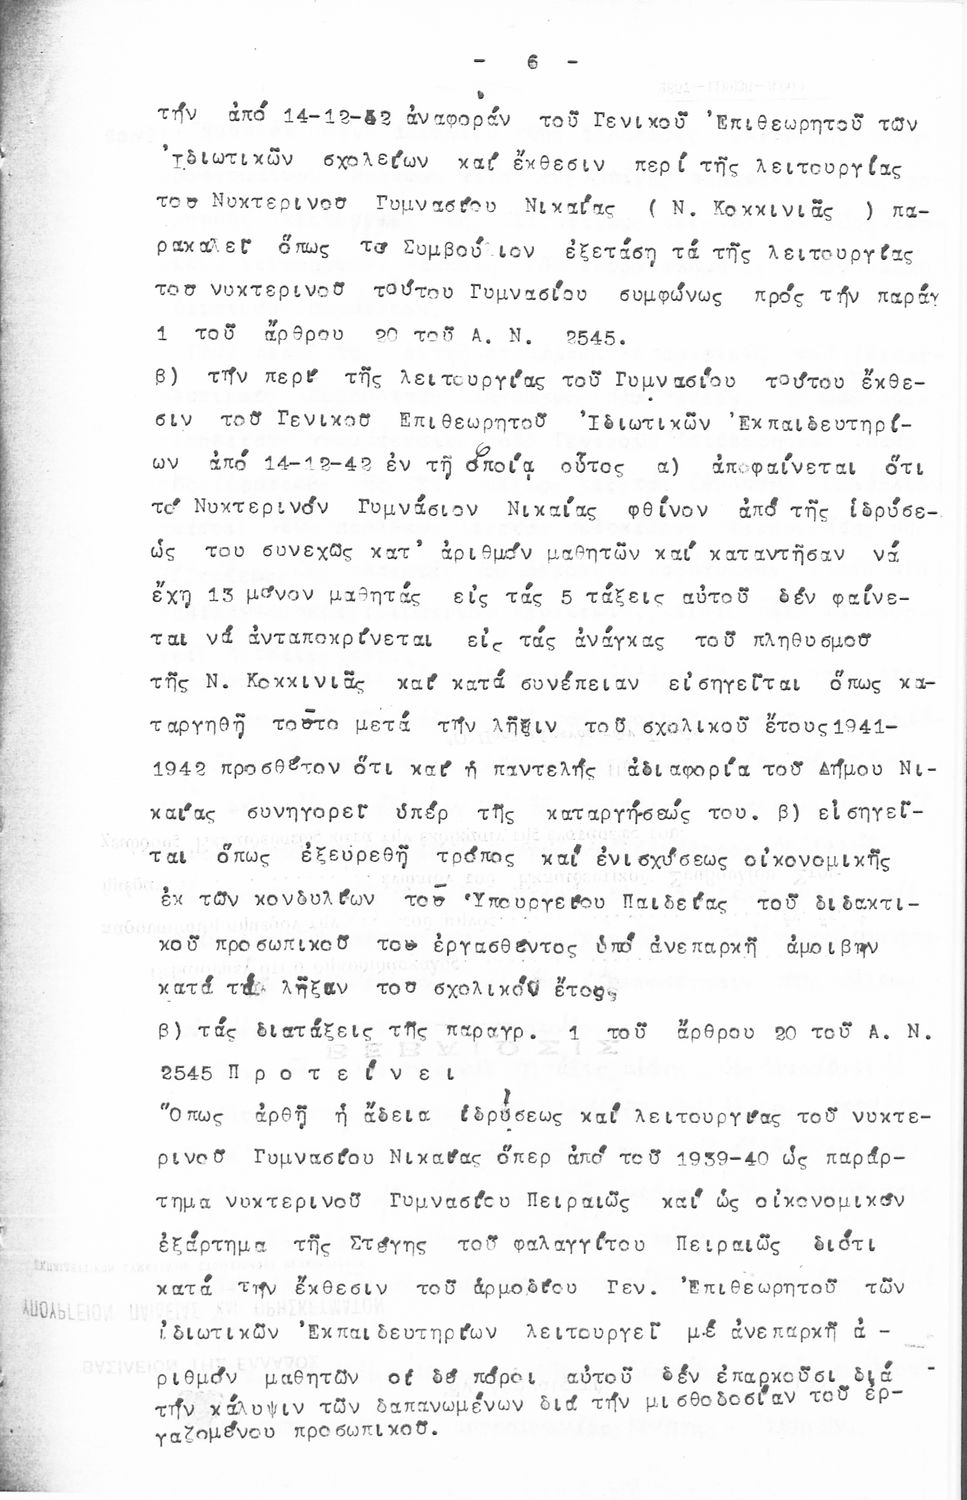 - 6 -
τήν ἀπό 14-12-42 ἀναφοράν τοῦ Γενικοῦ Ἐπιθεωρητοῦ τῶν
Ἰδιωτικῶν σχολείων καί ἔκθεσιν περί τῆς λειτουργίας
τοῦ Νυκτερινοῦ Γυμνασίου Νικαίας ( Ν. Κοκκινιᾶς ) πα-
ρακαλεῖ ὅπως τό Συμβούλιον ἐξετάσῃ τά τῆς λειτουργίας
τοῦ νυκτερινοῦ τούτου Γυμνασίου συμφώνως πρός τήν παράγ
1 τοῦ ἄρθρου 20 τοῦ Α. Ν. 2545.
β) τήν περί τῆς λειτουργίας τοῦ Γυμνασίου τούτου ἔκθε-
σιν τοῦ Γενικοῦ Ἐπιθεωρητοῦ Ἰδιωτικῶν Ἐκπαιδευτηρί-
ων ἀπό 14-12-42 ἐν τῇ ὁποίᾳ οὗτος α) ἀποφαίνεται ὅτι
τό Νυκτερινόν Γυμνάσιον Νικαίας φθίνον ἀπό τῆς ἱδρύσε-
ώς του συνεχῶς κατ' ἀριθμόν μαθητῶν καί καταντῆσαν νά
ἔχῃ 13 μόνον μαθητάς εἰς τάς 5 τάξεις αὐτοῦ δέν φαίνε-
ται νά ἀνταποκρίνεται εἰς τάς ἀνάγκας τοῦ πληθυσμοῦ
τῆς Ν. Κοκκινιᾶς καί κατά συνέπειαν εἰσηγεῖται ὅπως κα-
ταργηθῇ τοῦτο μετά τήν λῆξιν τοῦ σχολικοῦ ἔτους 1941-
1942 προσθέτον ὅτι καί ἡ παντελής ἀδιαφορία τοῦ Δήμου Νι-
καίας συνηγορεῖ ὑπέρ τῆς καταργήσεώς του. β) εἰσηγεῖ-
ται ὅπως ἐξευρεθῇ τρόπος καί ἐνισχύσεως οἰκονομικῆς
ἐκ τῶν κονδυλίων τοῦ Ὑπουργείου Παιδείας τοῦ διδακτι-
κοῦ προσωπικοῦ του ἐργασθέντος ὑπό ἀνεπαρκῆ ἀμοιβήν
κατά τό λῆξαν τοῦ σχολικοῦ ἔτος,
β) τάς διατάξεις τῆς παραγρ. 1 τοῦ ἄρθρου 20 τοῦ Α. Ν.
2545 Π ρ ο τ ε ί ν ε ι
Ὅπως ἀρθῇ ἡ ἄδεια ἱδρύσεως καί λειτουργίας τοῦ νυκτε-
ρινοῦ Γυμνασίου Νικαίας ὅπερ ἀπό τοῦ 1939-40 ὡς παράρ-
τημα νυκτερινοῦ Γυμνασίου Πειραιῶς καί ὡς οἰκονομικόν
ἐξάρτημα τῆς Στέγης τοῦ φαλαγγίτου Πειραιῶς διότι
κατά τήν ἔκθεσιν τοῦ ἁρμοδίου Γεν. Ἐπιθεωρητοῦ τῶν
ἰδιωτικῶν Ἐκπαιδευτηρίων λειτουργεῖ μέ ἀνεπαρκῆ ἀ -
ριθμόν μαθητῶν οἱ δέ πόροι αὐτοῦ δέν ἐπαρκοῦσι διά
τήν κάλυψιν τῶν δαπανωμένων διά τήν μισθοδοσίαν τοῦ ἐρ-
γαζομένου προσωπικοῦ.